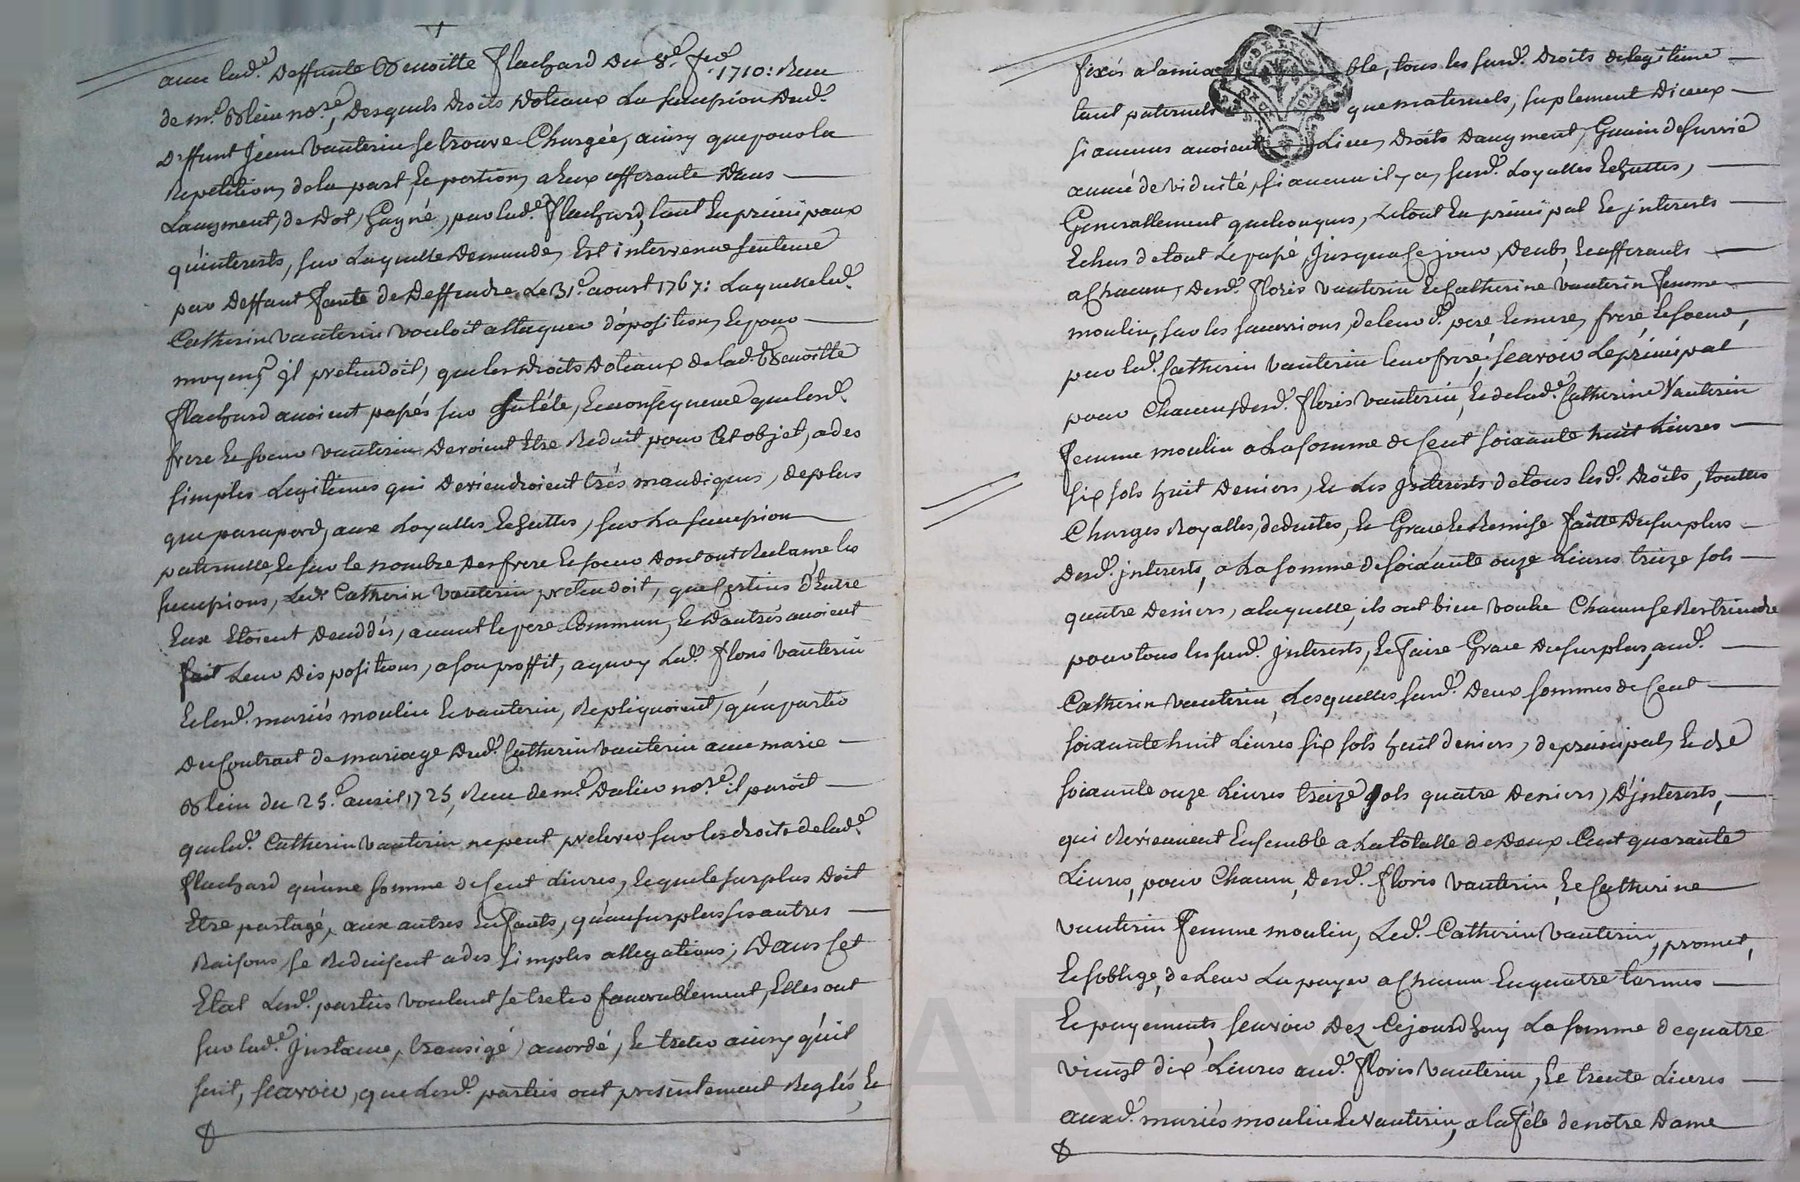 avec lad.e deffunte Benoitte Flachard du 8.e fev.r 1710: Recu
de m.e Blein no.re, desquels droits dotaux La succession dud.
deffunt Jean Vauterin se trouve Chargée, ainsy que pour la
Repetition, de la part Et portion, a Eux afferante dans
L'augment, de dot, Gagné, par lad.e Flachard, tant En principaux
qu'interests, sur Laquelle demande, Est intervenue sentence
par deffaut faute de deffendre Le 31.e aoust 1767: Laquelle led.
Catherin Vauterin vouloit attaquer d'oposition, Et pour
moyens il pretendoit, que les droits dotaux de lad.e Benoitte
Flachard avoient passés sur sa tête, En consequence que lesd.
frere Et soeur Vauterin devoient Etre Reduit pour Cet objet, a des
simples Legitimes qui deviendroient trés modiques, de plus
que par raport, aux Loyalles Echuttes, sur La succession
paternelle, Et sur le nombre des frere Et soeur dont ont Reclamé les
successions, Led. Catherin Vauterin pretendoit, que Certains d'Entre
Eux Etoient deceddés, avant le pere Commun, Et d'autres avoient
fait Leur dispositions, a son proffit, a quoy Led. Floris Vauterin
Et lesd. mariés moulin Et Vauterin, Repliquoient, qu'a partir
du Contrat de mariage dud. Catherin Vauterin avec marie
Blein du 25.e avril 1725, Recu de m.e Dalier no.re il paroit
que led. Catherin Vauterin ne peut prelever sur les droits de lad.e
Flachard qu'une somme de Cent Livres, Et que le surplus doit
Etre partagé, aux autres Enfants, qu'au surplus ses autres
Raisons, se Reduisent a des simples allegations; dans Cet
Etat Lesd. parties voulant se treter favorablement, Elles ont
sur lad.e Instance, transigé, accordé, Et treté ainsy qu'il
suit, scavoir, que Lesd. parties ont presentement Reglés, Et
fixés a l'amiable, tous les susd. droits de legitime
tant paternels que maternels, suplement d'iceux
si aucuns avoient Lieu, droits d'augment, Gain de survie
année de viduité, si aucun il y a, susd. Loyalles Echuttes,
Generallement quelconques, Le tout En principal Et interests
Echus de tout Le passé, Jusqua Ce jour, deubs, Et afferants
a Chacun, desd. Floris Vauterin Et Catherine Vauterin Femme
moulin, sur les successions, de leurd. pere, Et mere, frere, Et soeur,
par led. Catherin Vauterin leur frere, scavoir Le principal
pour Chacun, desd. Floris Vauterin, Et de lad.e Catherine Vauterin
femme moulin a La somme de Cent soixante huit Livres
six sols huit deniers, Et Les Interests de tous lesd. droits, touttes
Charges Royalles, deduites, Et Grace Et Remise faitte du surplus
desd. interests, a La somme de soixante onze Livres treize sols
quatre deniers, a laquelle, ils ont bien voulu Chacun se Restraindre
pour tous les susd. Interests, Et Faire Grace du surplus, aud.
Catherin Vauterin, Lesquelles susd. deux sommes de Cent
soixante huit Livres six sols huit deniers, de principal, Et de
soixante onze Livres treize sols quatre deniers, d'interests,
qui Reviennent Ensemble a La totalle de deux Cent quarante
Livres, pour Chacun, desd. Floris Vauterin, Et Catherine
Vauterin Femme moulin, Led. Catherin Vauterin, promet,
Et s'oblige, de Leur La payer a Chacun En quatre termes
Et payements, scavoir dez Cejourd'huy La somme de quatre
vingt dix Livres aud. Floris Vauterin, Et trente Livres
auxd. mariés moulin Et Vauterin, a la fête de notre dame